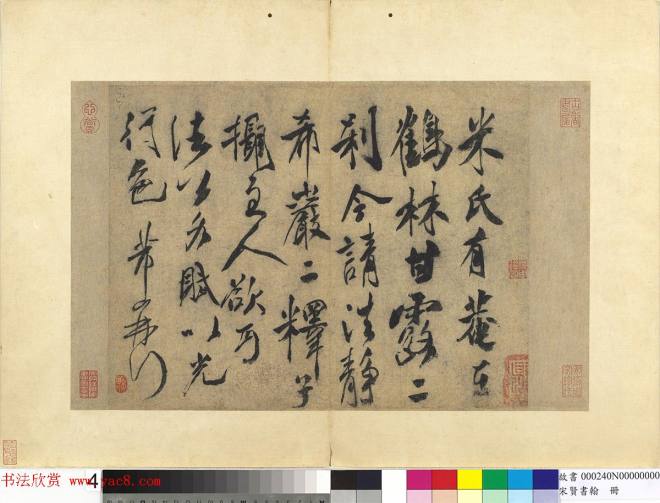 米氏有菴在
鶴林甘露二
刹今請法靜
希巖二釋子
主人欲可
法公多賦以光
行色 芾再拜
书法欣赏 4 www.yac8.com
故書 000240N00000000
宋賢書翰 冊